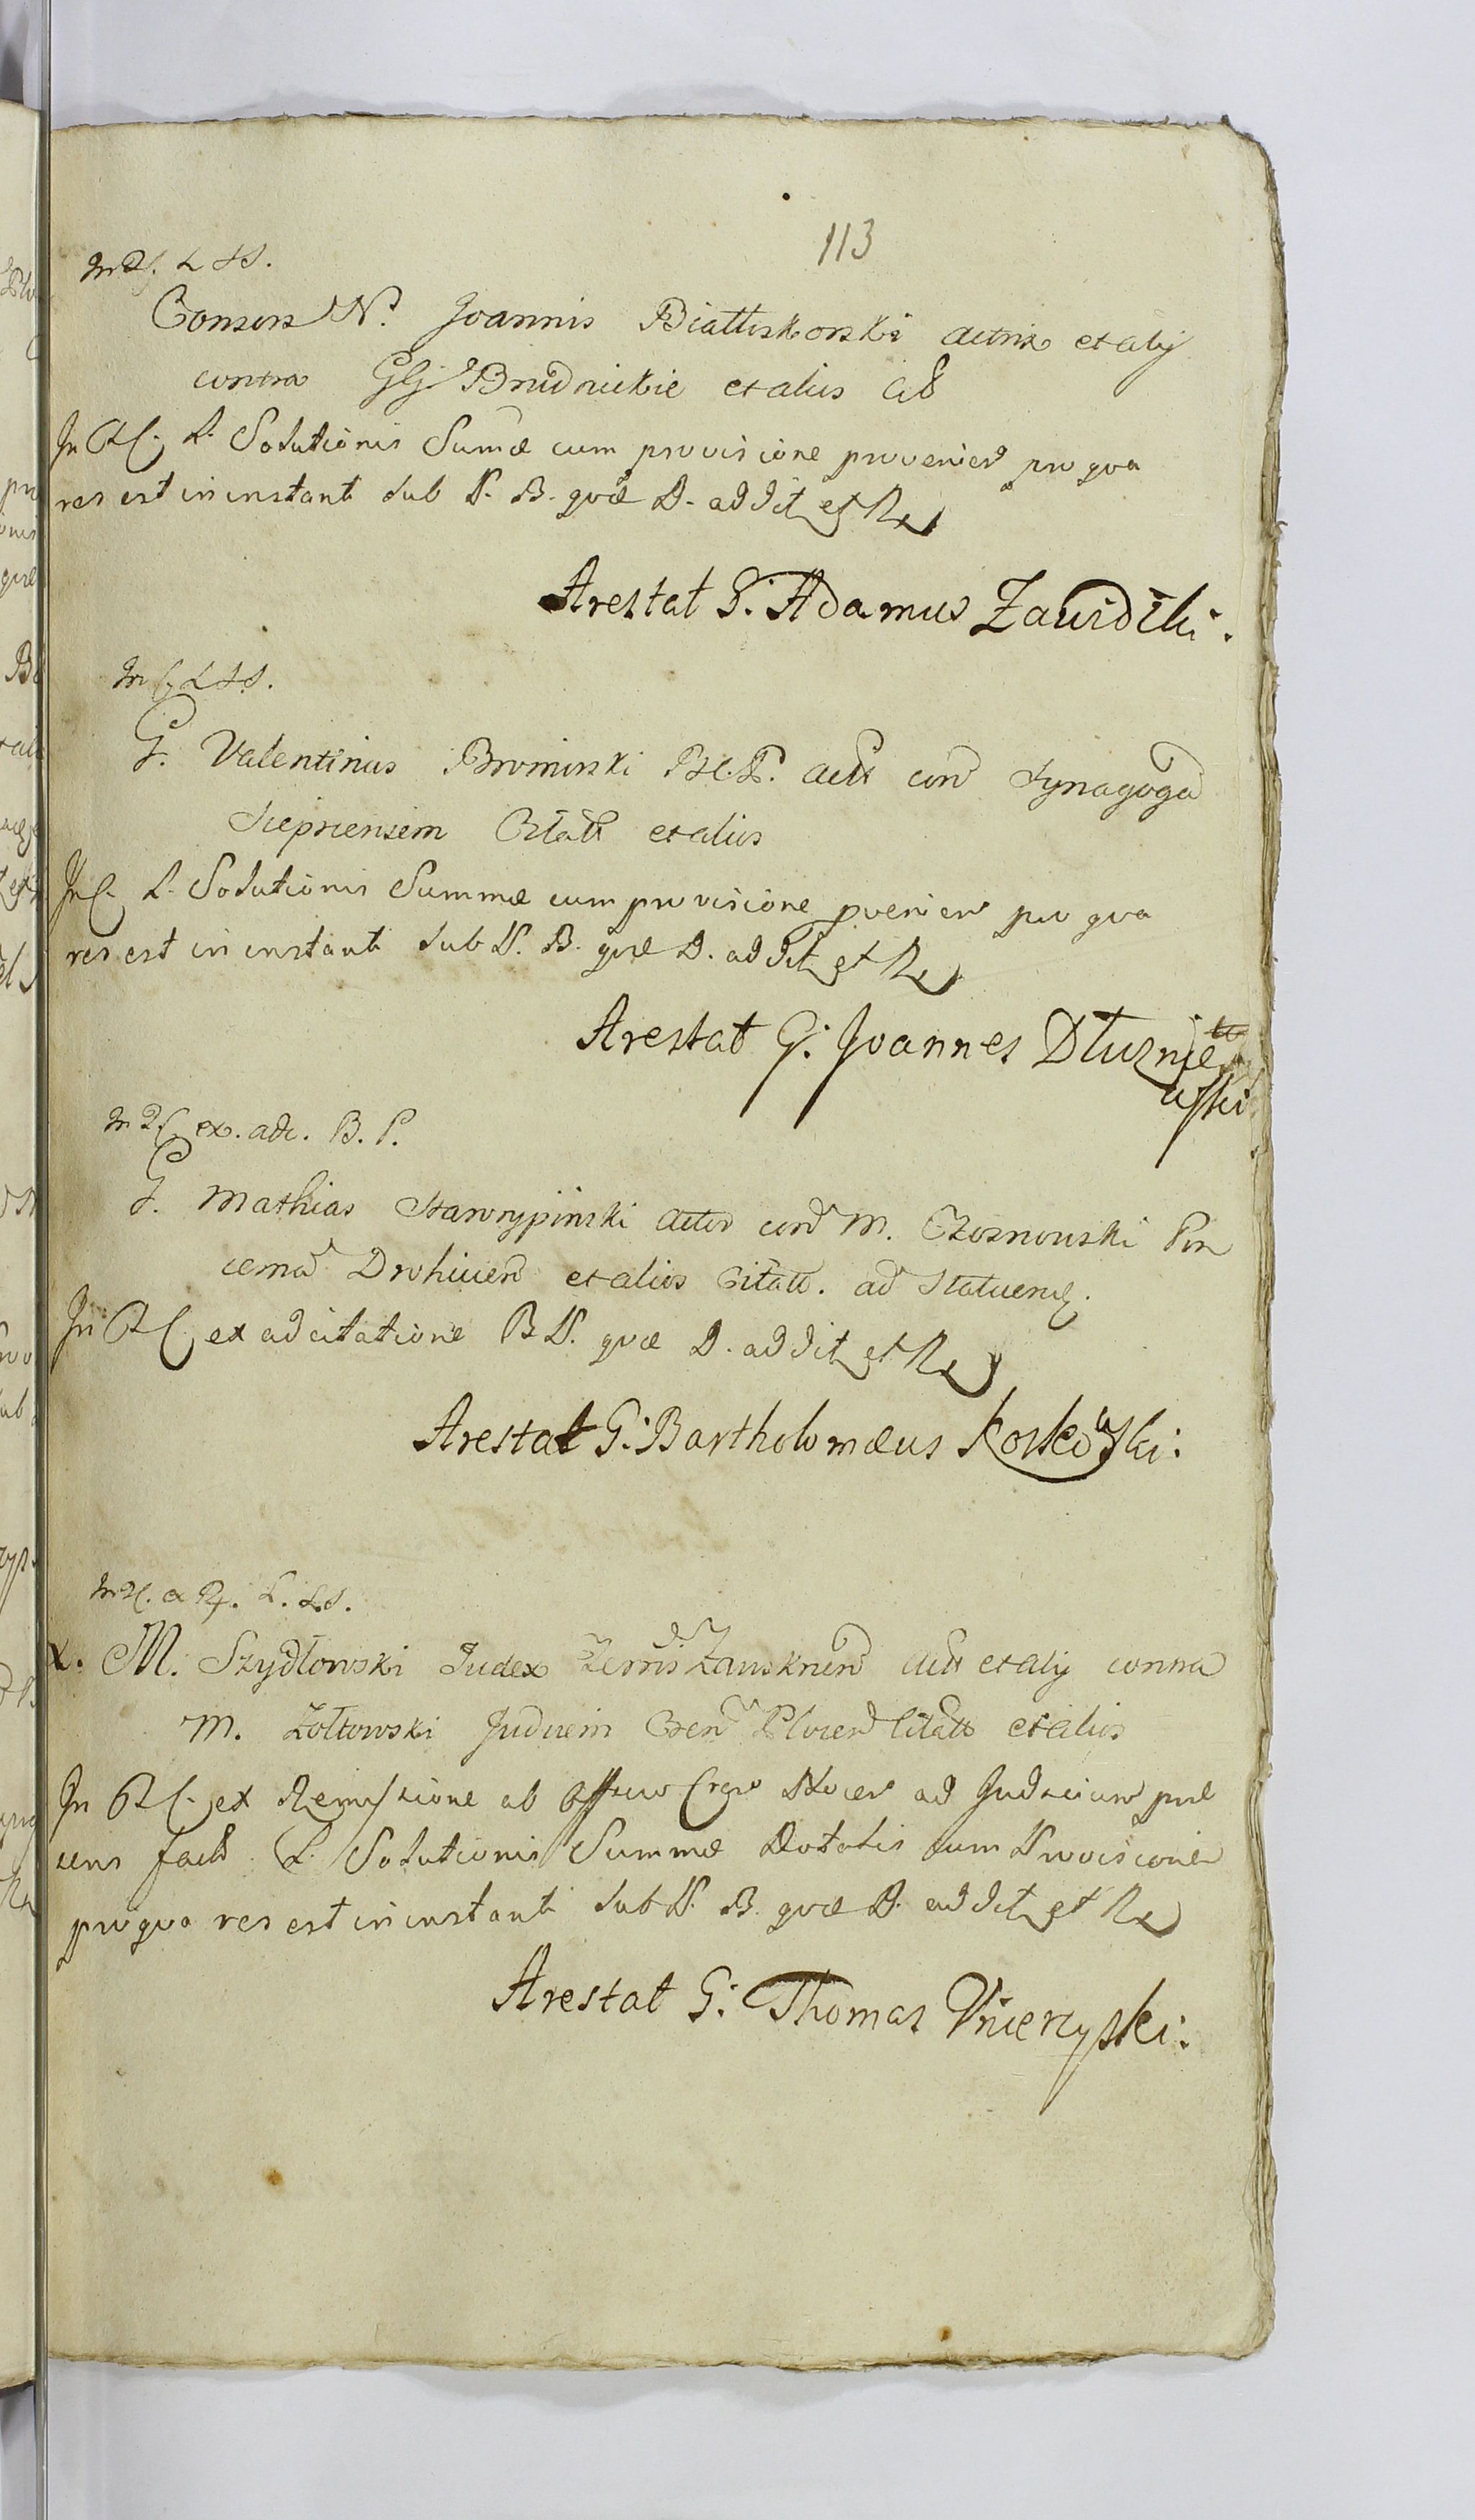 113
Consors N. Joannis Biattiskorski actrix et alij
contra GG Brudnickie et alios Cit
In L. Solutionis Sumæ cum provisione provenien pro qva
res est in instanti sub P. B. qvæ D. addit et Re
Arestat G. Adamus Zawidzki.
G. Valentinus Bromirski actt con Synagogā
Siepriensem Citatt et alios
In L. Solutionis Summæ cum provisione pvenien pro qva
res est in instanti sub P. B. qvæ D. addit et Re
Arestat G. Joannes Dłużnie
wski
ex. adc. B. P.
G. Mathias Starorypinski Actor con M. Czosnowski Pin
cernā Drohicen et alios Citatt. ad Statuend.
In ex adcitatione B P. qvæ D. addit et Re
Arestat G. Bartholomæus Koskowski.
M. Szydłowski Judex Terris Zawskrnen Actt et alij contra
M. Żołtowski Judicem Plocen Citatt et alios
In ex Remissione ab Offcio Cren Plocen ad Judicium præ
sens fact L. Solutionis Summæ Dotalis cum Provisione
pro qva res est in instanti sub P. B. qvæ D. addit et Re
Arestat G. Thomas Unierzyski.